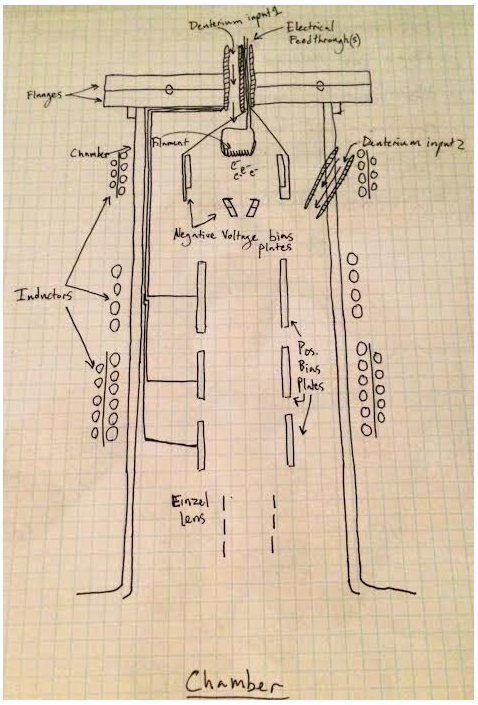 Deuterium input 1
Electrical
Feedthrough(s)
Flanges
Chamber
Filament
Deuterium input 2
e⁻
e⁻ e⁻ e⁻
Negative Voltage bias
plates
Inductors
Pos.
Bias
Plates
Einzel
Lens
Chamber